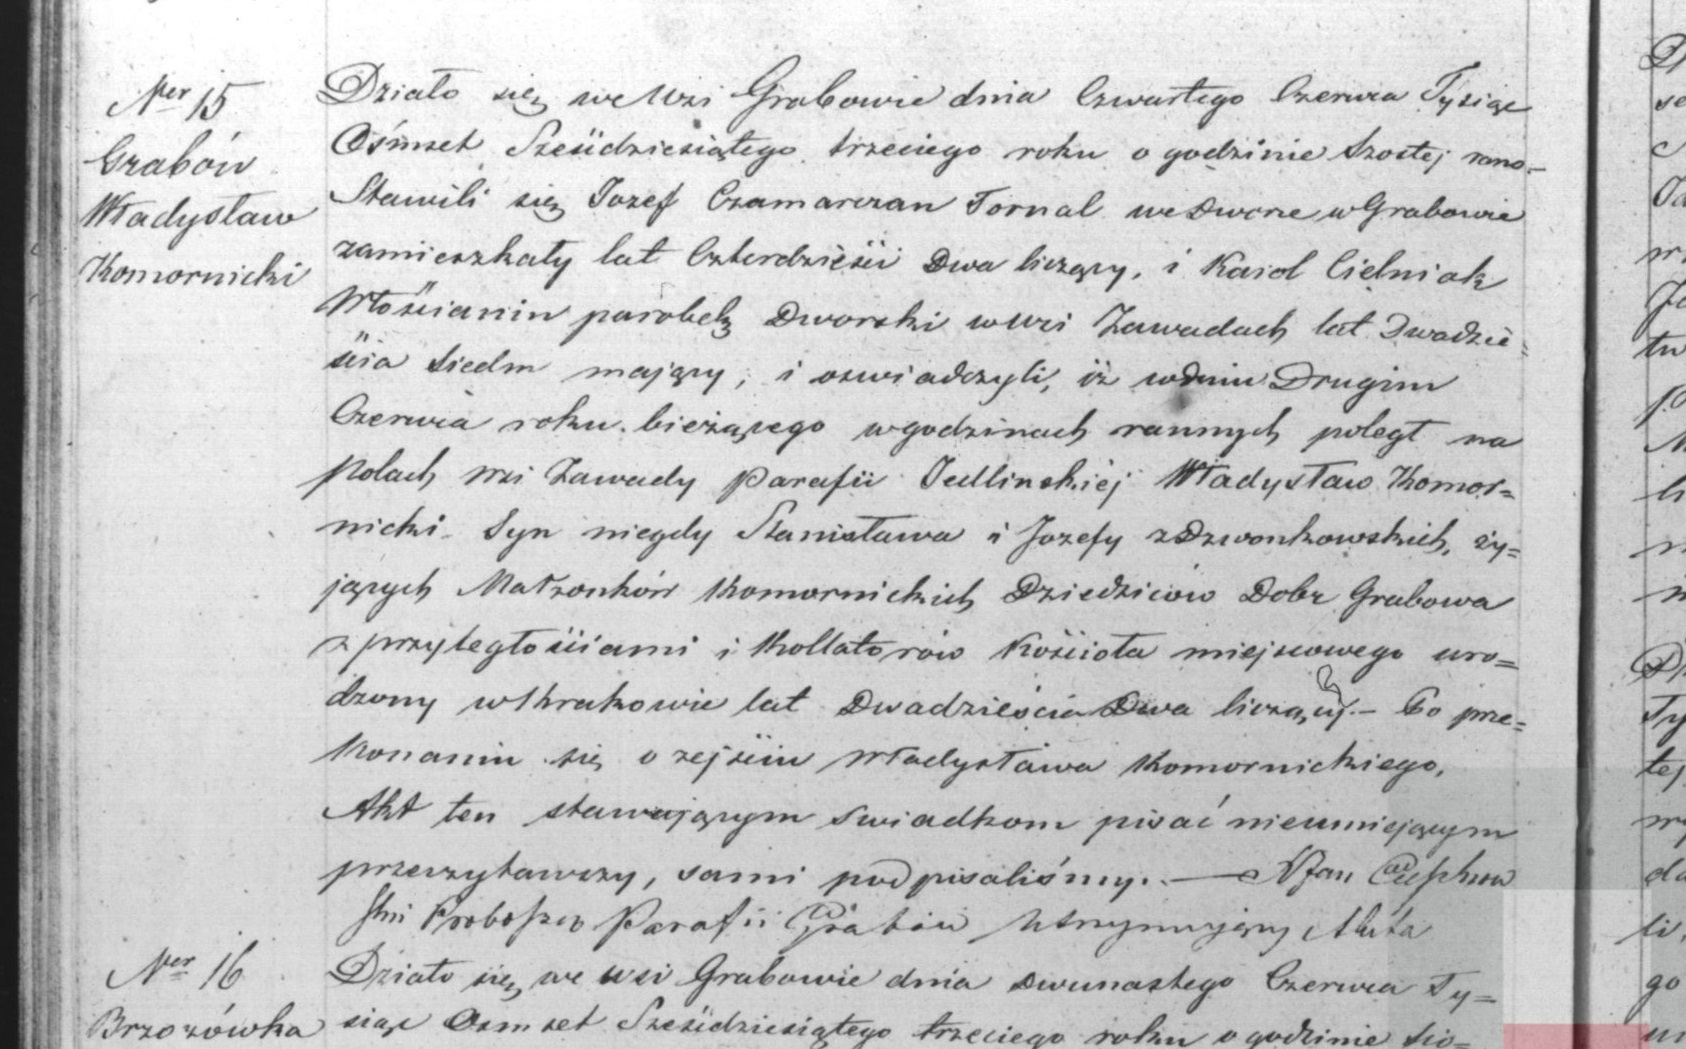 Ner 15
Grabów
Władysław
Komornicki
Działo się we Wsi Grabowie dnia Czwartego Czerwca Tysiąc
Ośmset Sześdziesiątego trzeciego roku o godzinie Szostej rano.
Stawili się Jozef Czamarczan Fornal we Dworze w Grabowie
zamieszkały lat Czterdzieści Dwa liczący, i Karol Cielniak
Włościanin parobek Dworski w wsi Zawadach lat Dwadzie=
ścia Siedm mający, i oswiadczyli, iż w dniu Drugim
Czerwca roku bieżącego w godzinach rannych poległ na
polach wsi Zawady Parafii Jedlinskiéj Władysław Komor=
nicki Syn niegdy Stanisława i Jozefy z Dzwonkowskich, ży=
jących Małzonków Komornickich Dziedziców Dobr Grabowa
z przyległościami i Kollatorów Kościoła miejscowego uro=
dzony w Krakowie lat Dwadzieścia Dwa liczący.– Po prze=
konaniu się o zejściu Władysława Komornickiego,
Akt ten stawającym swiadkom pisać nieumiejącym
przeczytawszy, sami podpisaliśmy. — X Jan
Proboszcz Parafii Grabów Utrzymujący Akta
Ner 16
Brzozówka
Działo się, we wsi Grabowie dnia Dwunastego Czerwca Ty=
siąc Osmset Sześdziesiątego trzeciego roku o godzinie Sió=